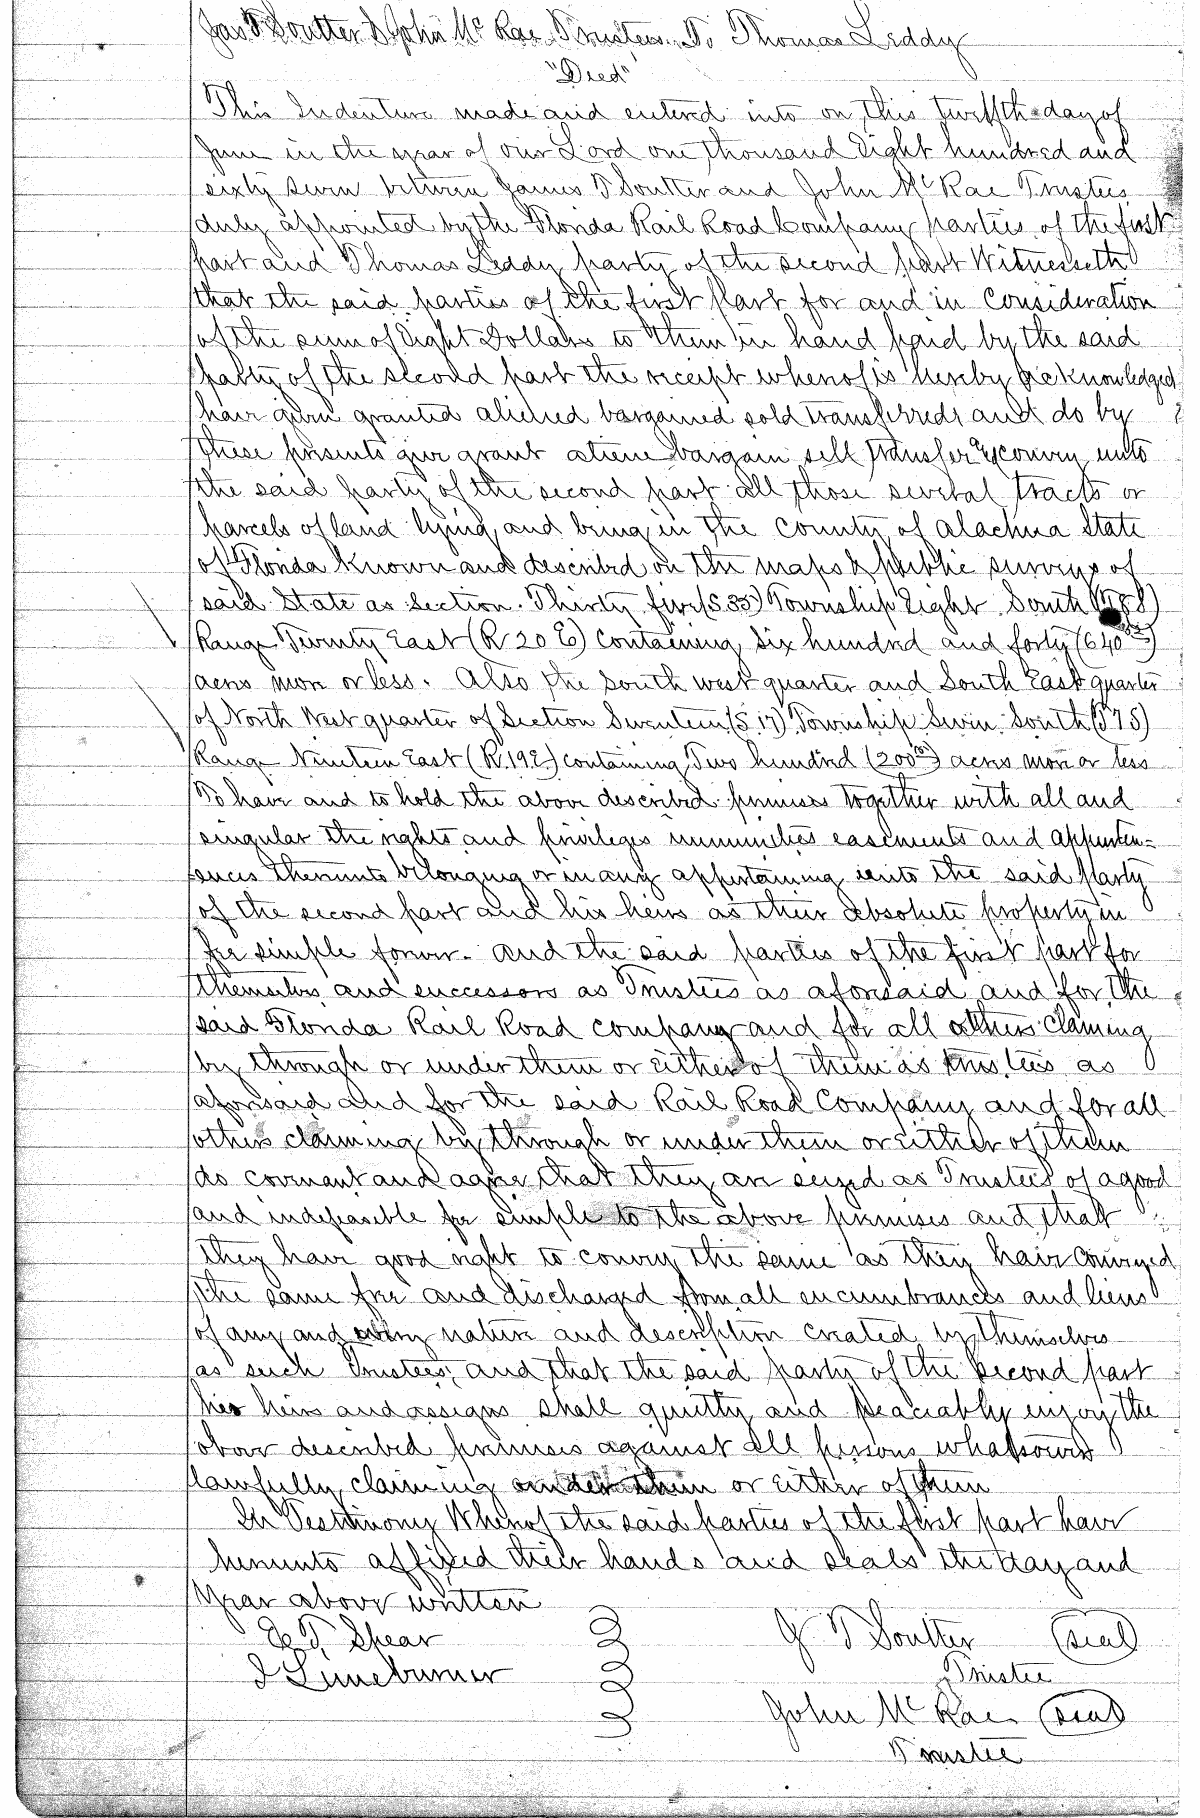 Jas T Soutter & John Mc Rae Trustees To Thomas Leddy
"Deed"
This Indenture made and entered into on this twelfth day of
June in the year of our Lord one thousand Eight hundred and
sixty seven between James T Soutter and John Mc Rae Trustees
duly appointed by the Florida Rail Road Company parties of the first
part and Thomas Leddy party of the second part Witnesseth
that the said parties of the first part for and in Consideration
of the sum of Eight Dollars to them in hand paid by the said
party of the second part the receipt whereof is hereby acknowledged
have given granted aliened bargained sold transferred and do by
these presents give grant aliene bargain sell transfer & convey unto
the said party of the second part all those several tracts or
parcels of land lying and being in the County of Alachua State
of Florida Known and described on the maps & public surveys of
said State as Section Thirty five (S 35) Township Eight South
Range Twenty East (R 20 E) Containing six hundred and forty (640)
acres more or less. Also the South west quarter and South East quarter
of North West quarter of Section Seventeen (S 17) Township Seven South (T 7 S)
Range Nineteen East (R. 19 E) containing Two hundred (200) acres more or less
To have and to hold the above described premises together with all and
singular the rights and privileges immunities easements and appurten=
ences thereunto belonging or in any appertaining unto the said party
of the second part and his heirs as their absolute property in
fee simple forever. and the said parties of the first part for
themselves and successors as Trustees as aforesaid and for the
said Florida Rail Road company and for all others claming
by through or under them or either of them as trustees as
aforesaid and for the said Rail Road Company and for all
others claiming by through or under them or either of them
do covenant and agree that they are seized as Trustees of a good
and indefeasible fee simple to the above premises and that
they have good right to convey the same as they have Conveyed
the same free and discharged from all encumbrances and liens
of any and every nature and description created by themselves
as such Trustees, and that the said party of the second part
his heirs and assigns shall quietly and peaceably enjoy the
above described premises against all persons whatsoever
lawfully claiming under them or either of them
In Testimony Whereof the said parties of the first part have
hereunto affixed their hands and seals the day and
year above written
T. Shear J T Soutter (seal)
J Luneburner Trustee
John Mc Rae (seal)
Trustee